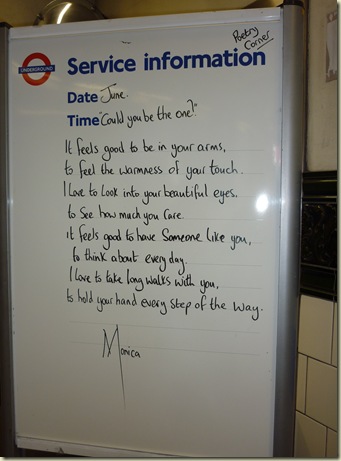 Poetry
Corner
UNDERGROUND
Service information
Date June.
Time "Could you be the one?"
It feels good to be in your arms,
to feel the warmness of your touch.
I Love to Look into your beautiful eyes.
to See how much you care.
it feels good to have Someone like you,
to think about every day.
I love to take long walks with you,
to hold your hand every step of the way.
Monica